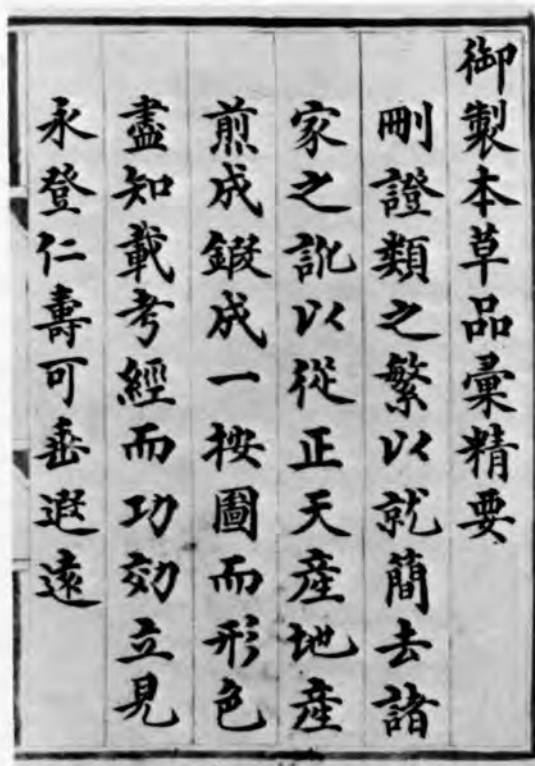 御製本草品彙精要
刪證類之繁以就簡去諸
家之訛以從正天産地産
煎成鍛成一按圖而形色
盡知載考經而功効立見
永登仁壽可垂遐遠